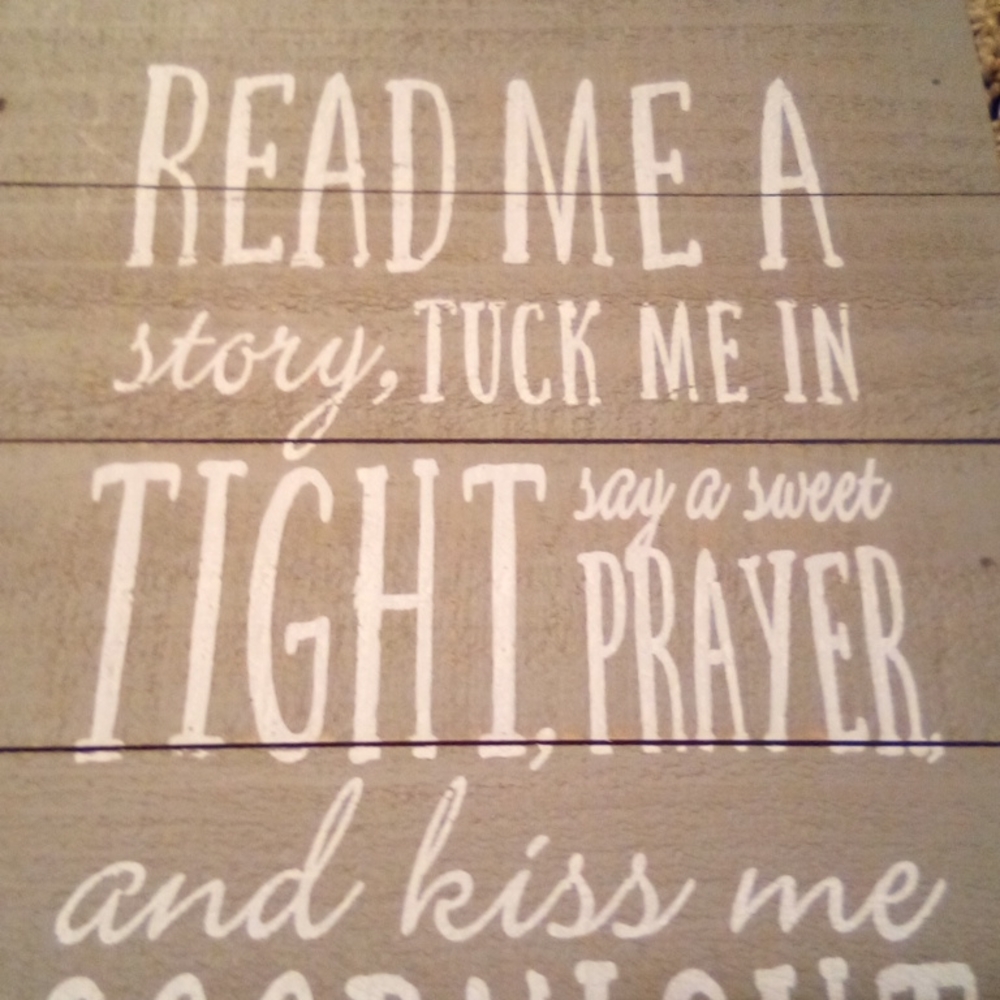 READ ME A
story, TUCK ME IN
TIGHT, say a sweet
PRAYER,
and kiss me